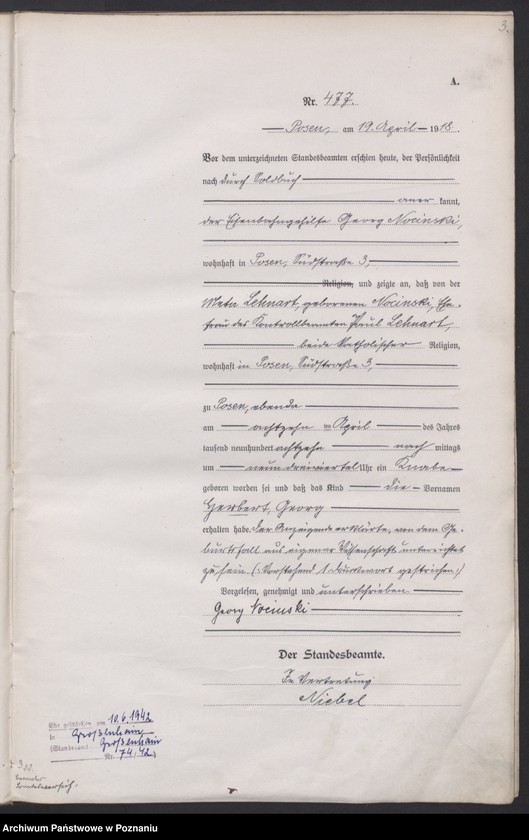 3.
A.
Nr. 477.
Posen, am 19. April 1918.
Vor dem unterzeichneten Standesbeamten erschien heute, der Persönlichkeit
nach durch Soldbuch
aner kannt,
der Eisenbahngehilfe Georg Nocinski,
wohnhaft in Posen, Südstraße 3,
Religion, und zeigte an, daß von der
Meta Lehnart, geborenen Nocinski, Ehe-
frau des Kontrollbeamten Paul Lehnart,
beide katholischer Religion,
wohnhaft in Posen, Südstraße 3,
zu Posen, ebenda
am achtzehn ten April des Jahres
tausend neunhundert achtzehn nach mittags
um neun dreiviertel Uhr ein Knabe
geboren worden sei und daß das Kind die Vornamen
Herbert, Georg
erhalten habe. Der Anzeigende erklärte, von dem Ge-
burtsfall aus eigener Wissenschaft unterrichtet
zu sein (: Vorstehend 1 Druckwort gestrichen :)
Vorgelesen, genehmigt und unterschrieben
Georg Nocinski
Der Standesbeamte.
In Vertretung
Niebel
Ehe geschlossen am 10.6.1942
in Großenhain
(Standesamt Großenhain
Nr. 74/42)
Archiwum Państwowe w Poznaniu